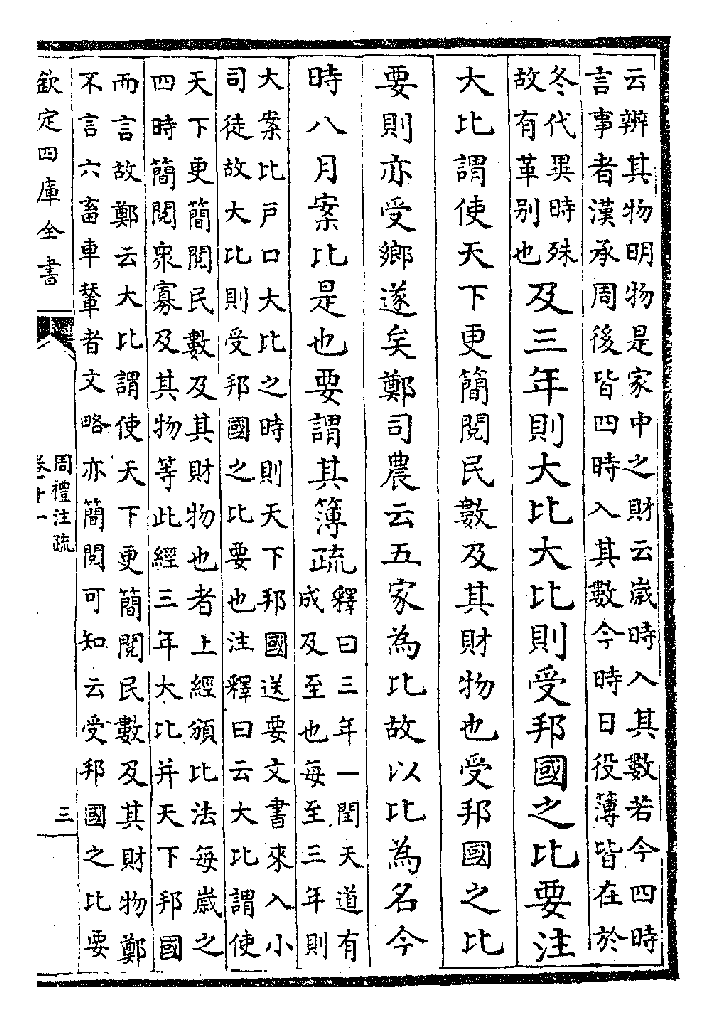 云辨其物明物是家中之財云歲時入其數若今四時
言事者漢承周後皆四時入其數今時日役簿皆在於
冬代異時殊
故有革别也
及三年則大比大比則受邦國之比要注
大比謂使天下更簡閱民數及其財物也受邦國之比
要則亦受鄉遂矣鄭司農云五家為比故以比為名今
時八月案比是也要謂其簿疏
釋曰三年一閏天道有
成及至也每至三年則
大案比戸口大比之時則天下邦國送要文書來入小
司徒故大比則受邦國之比要也注釋曰云大比謂使
天下更簡閱民數及其財物也者上經頒比法每歲之
四時簡閱衆寡及其物等此經三年大比并天下邦國
而言故鄭云大比謂使天下更簡閱民數及其財物鄭
不言六畜車輦者文略亦簡閱可知云受邦國之比要
欽定四庫全書
周禮注疏
卷十一
三